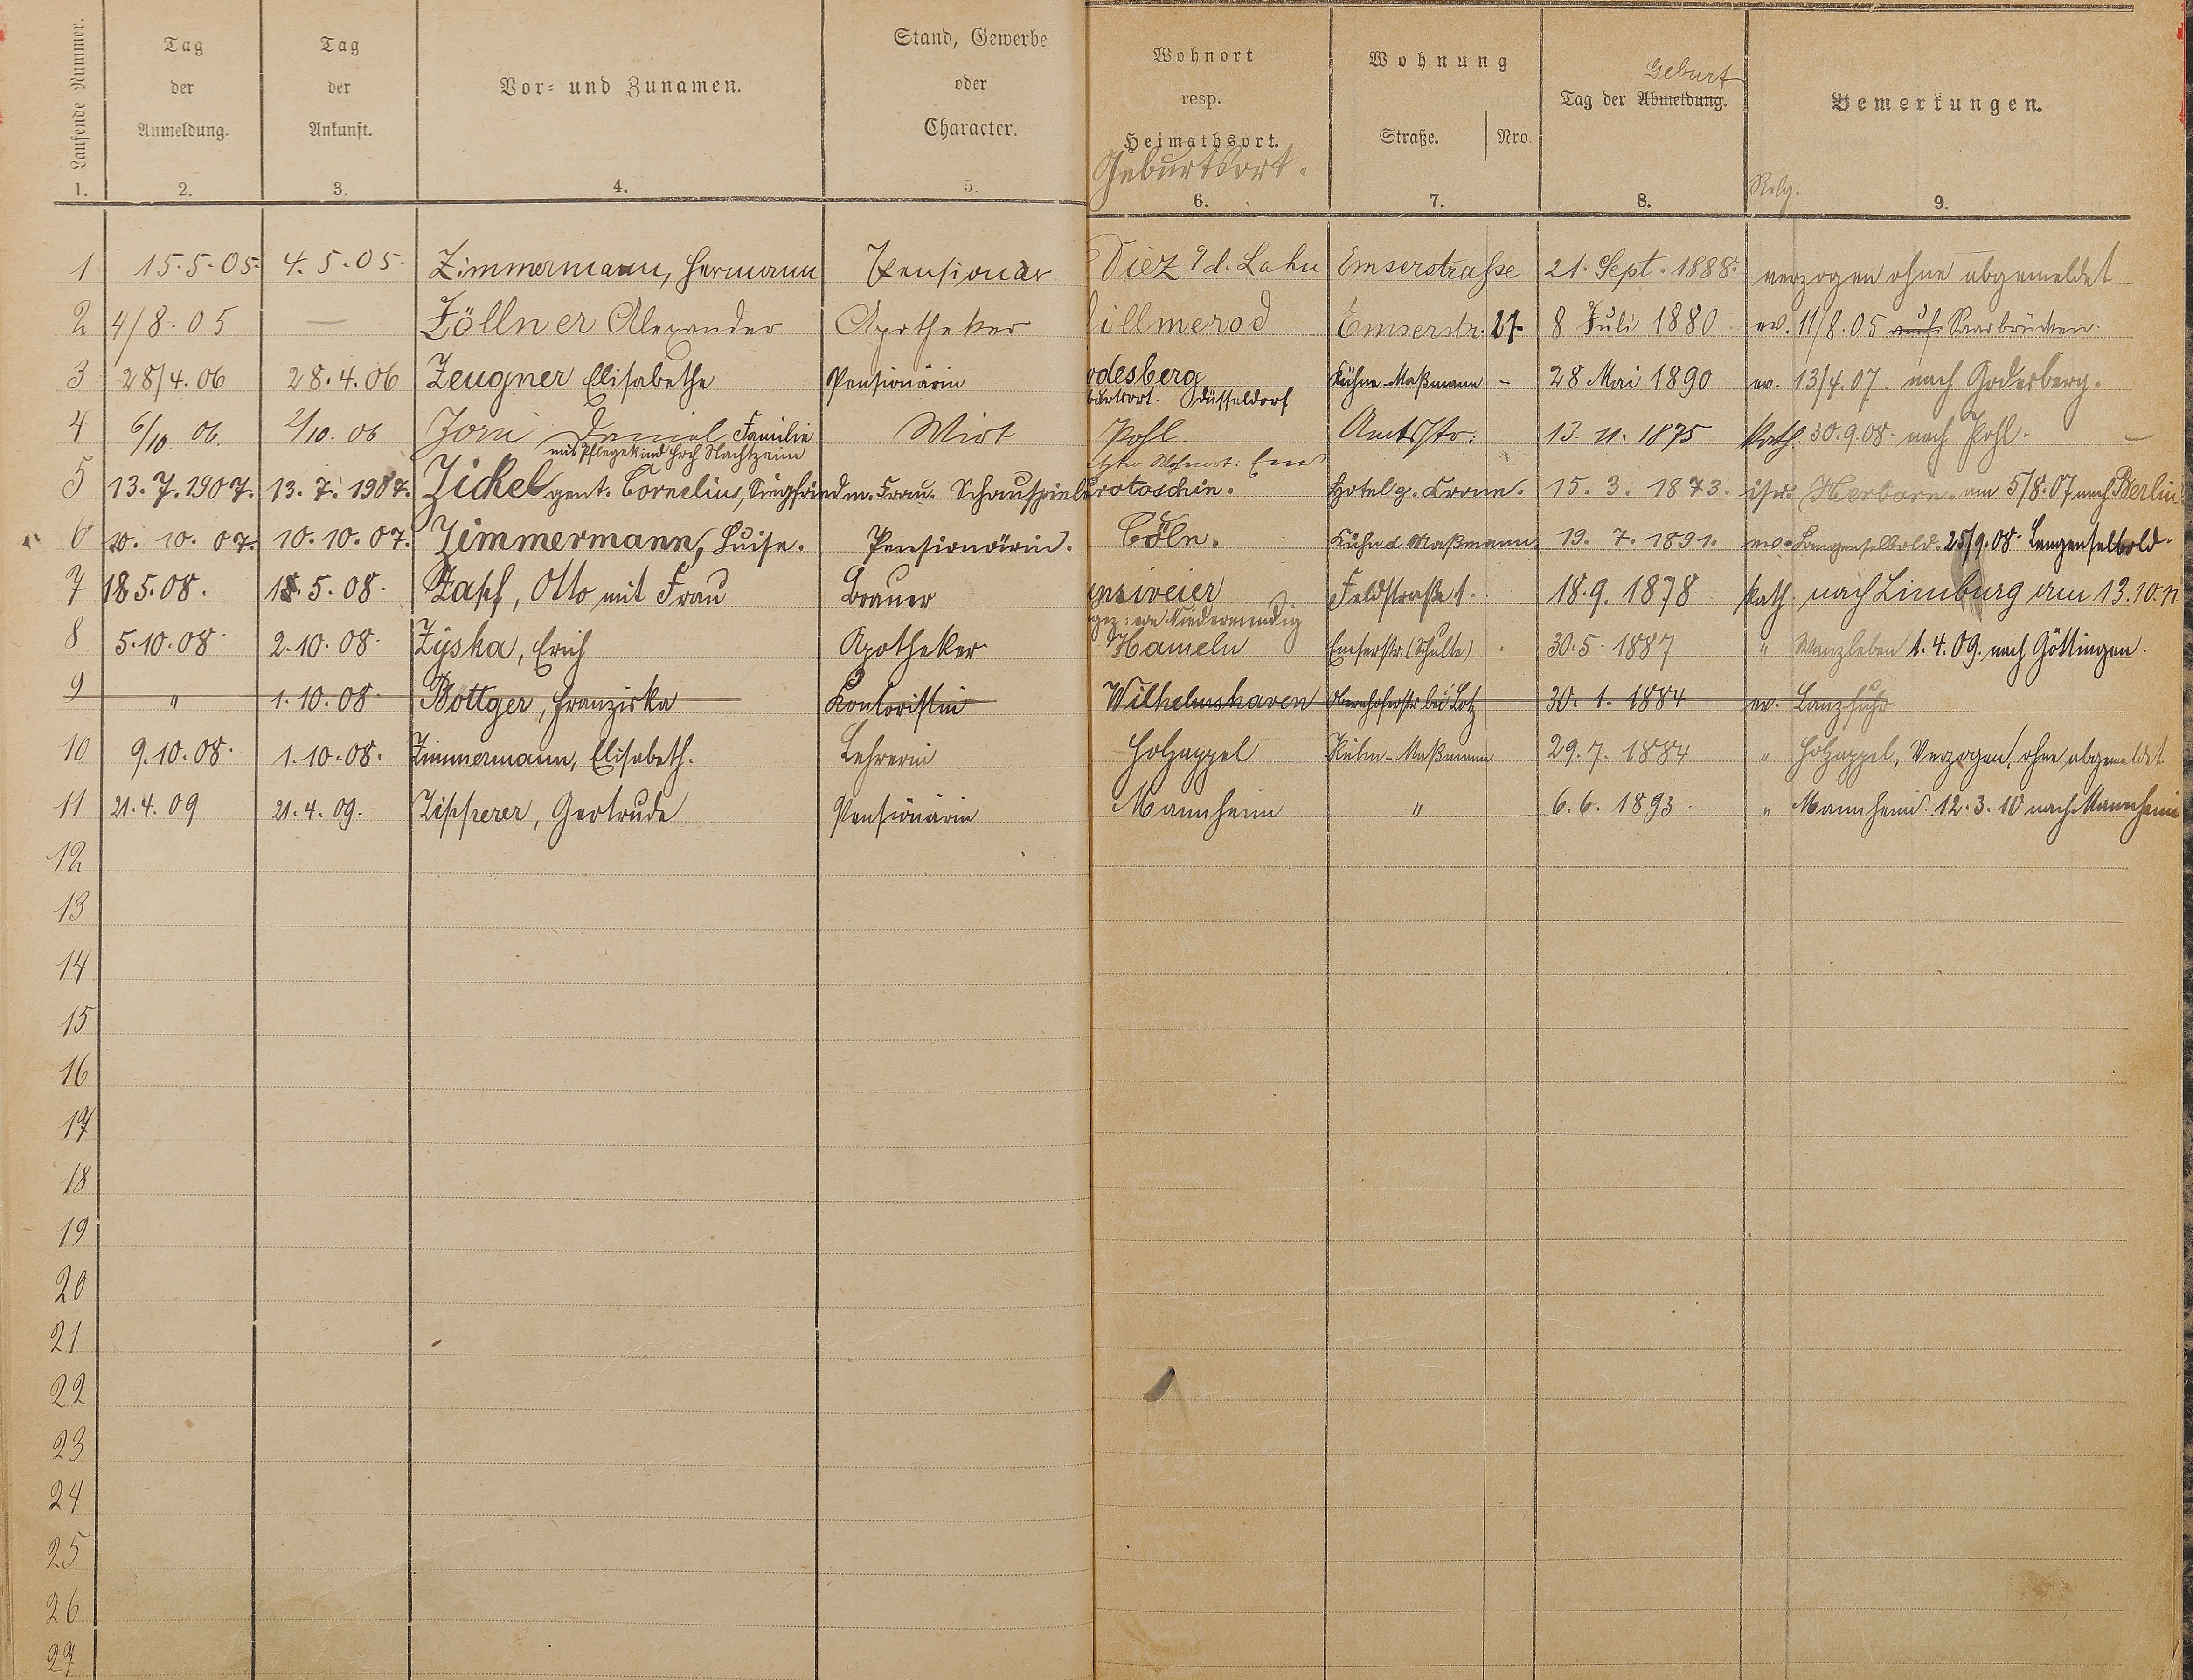 Laufende Nummer. Tag der Anmeldung. Tag der Ankunft. Vor- und Zunamen. Stand, Gewerbe oder Character. Wohnort resp. Heimathsort. Geburtsort. Wohnung Straße. Nro. Tag der Abmeldung. Geburt Bemerkungen. Relg.
1. 2. 3. 4. 5. 6. 7. 8. 9.
1 15.5.05. 4.5.05. Zimmermann, Hermann Pensionär Diez a d. Lahn Emserstraße 21. Sept. 1888. verzogen ohne abgemeldet
2 4/8.05 — Zöllner Alexander Apotheker illmerod Emserstr. 27 8 Juli 1880 ev. 11/8.05 auf Saarbrücken.
3 28/4.06 28.4.06 Zeugner Elisabethe Pensionärin odesberg Kühne-Maßmann - 28 Mai 1890 ev. 13/4.07. nach Godesberg.
burtsort. Düsseldorf
4 6/10. 06. 2/10. 06 Zorn Daniel Familie Wirt Pohl Amtsstr. 13.11.1875 Kath. 30.9.08. nach Pohl. —
mit Pflegekind
Wohnort: Ems
5 13.7.1907. 13.7.1907. Zickel gent. Cornelius, Siegfried m. Frau. Schauspieler rotoschin. Hotel z. Krone. 15.3.1873. isr. Herborn. am 5/8.07 nach Berlin
6 10.10.07. 10.10.07. Zimmermann, Luise. Pensionärin. Cöln. Kühn d Maßmann. 19.7.1891. ev. Langenselbold. 25/9.08. Langenselbold.
7 18.5.08. 18.5.08. Zapf, Otto mit Frau Brauer nsweier Feldstraße 1. 18.9.1878 Kath. nach Limburg am 13.10.11
gez: von Niedermendig
8 5.10.08. 2.10.08. Zyska, Erich Apotheker Hameln Emserstr. (Schulte) 30.5.1887 " Wanzleben 1.4.09. nach Göttingen.
9 " 1.10.08. Böttger, Franziska Kontoristin Wilhelmshaven Obernhoferstr bei Lotz 30.1.1884 ev. Lanzfuhr.
10 9.10.08. 1.10.08. Zimmermann, Elisabeth. Lehrerin Holzappel Kühn-Maßmann 29.7.1884 " Holzappel, Verzogen, ohne abgemeldet
11 21.4.09 21.4.09. Zipperer, Gertrude Pensionärin Mannheim " 6.6.1893. " Mannheim. 12.3.10 nach Mannheim
12
13
14
15
16
17
18
19
20
21
22
23
24
25
26
27